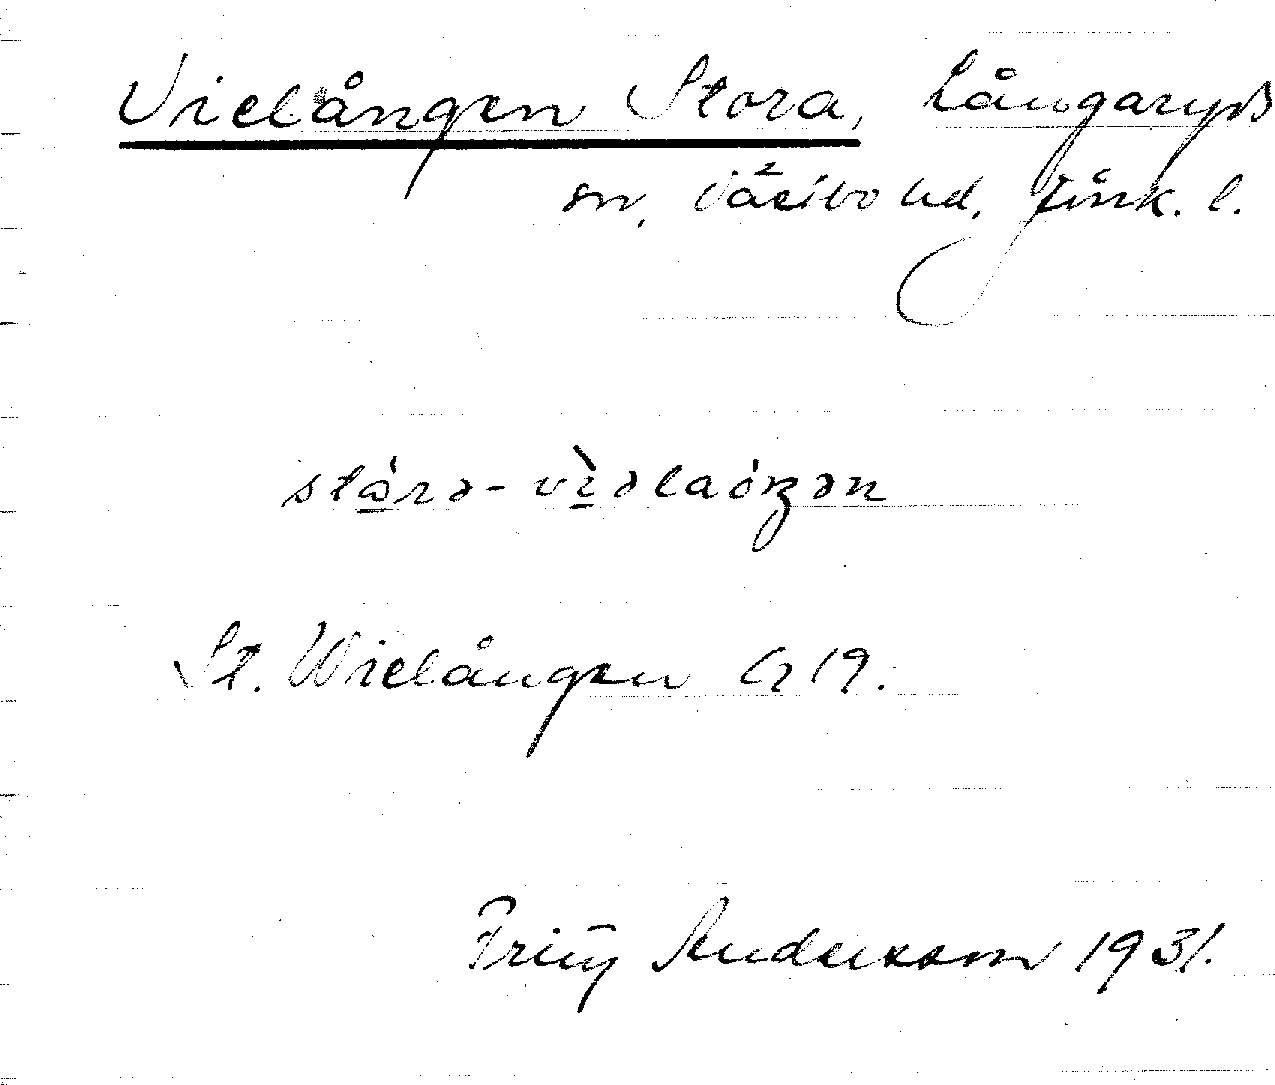 Vielången Stora, Långaryds
sn, Västbo hd, Jönk. l.
St. Wielången G 19.
Andersson 1931.